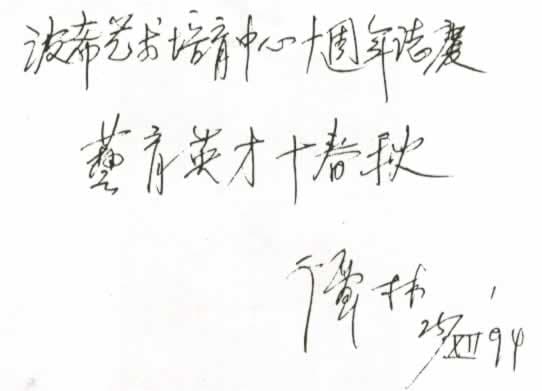 波希艺术培育中心十周年誌慶
藝育英才十春秋
林
25/XII '94